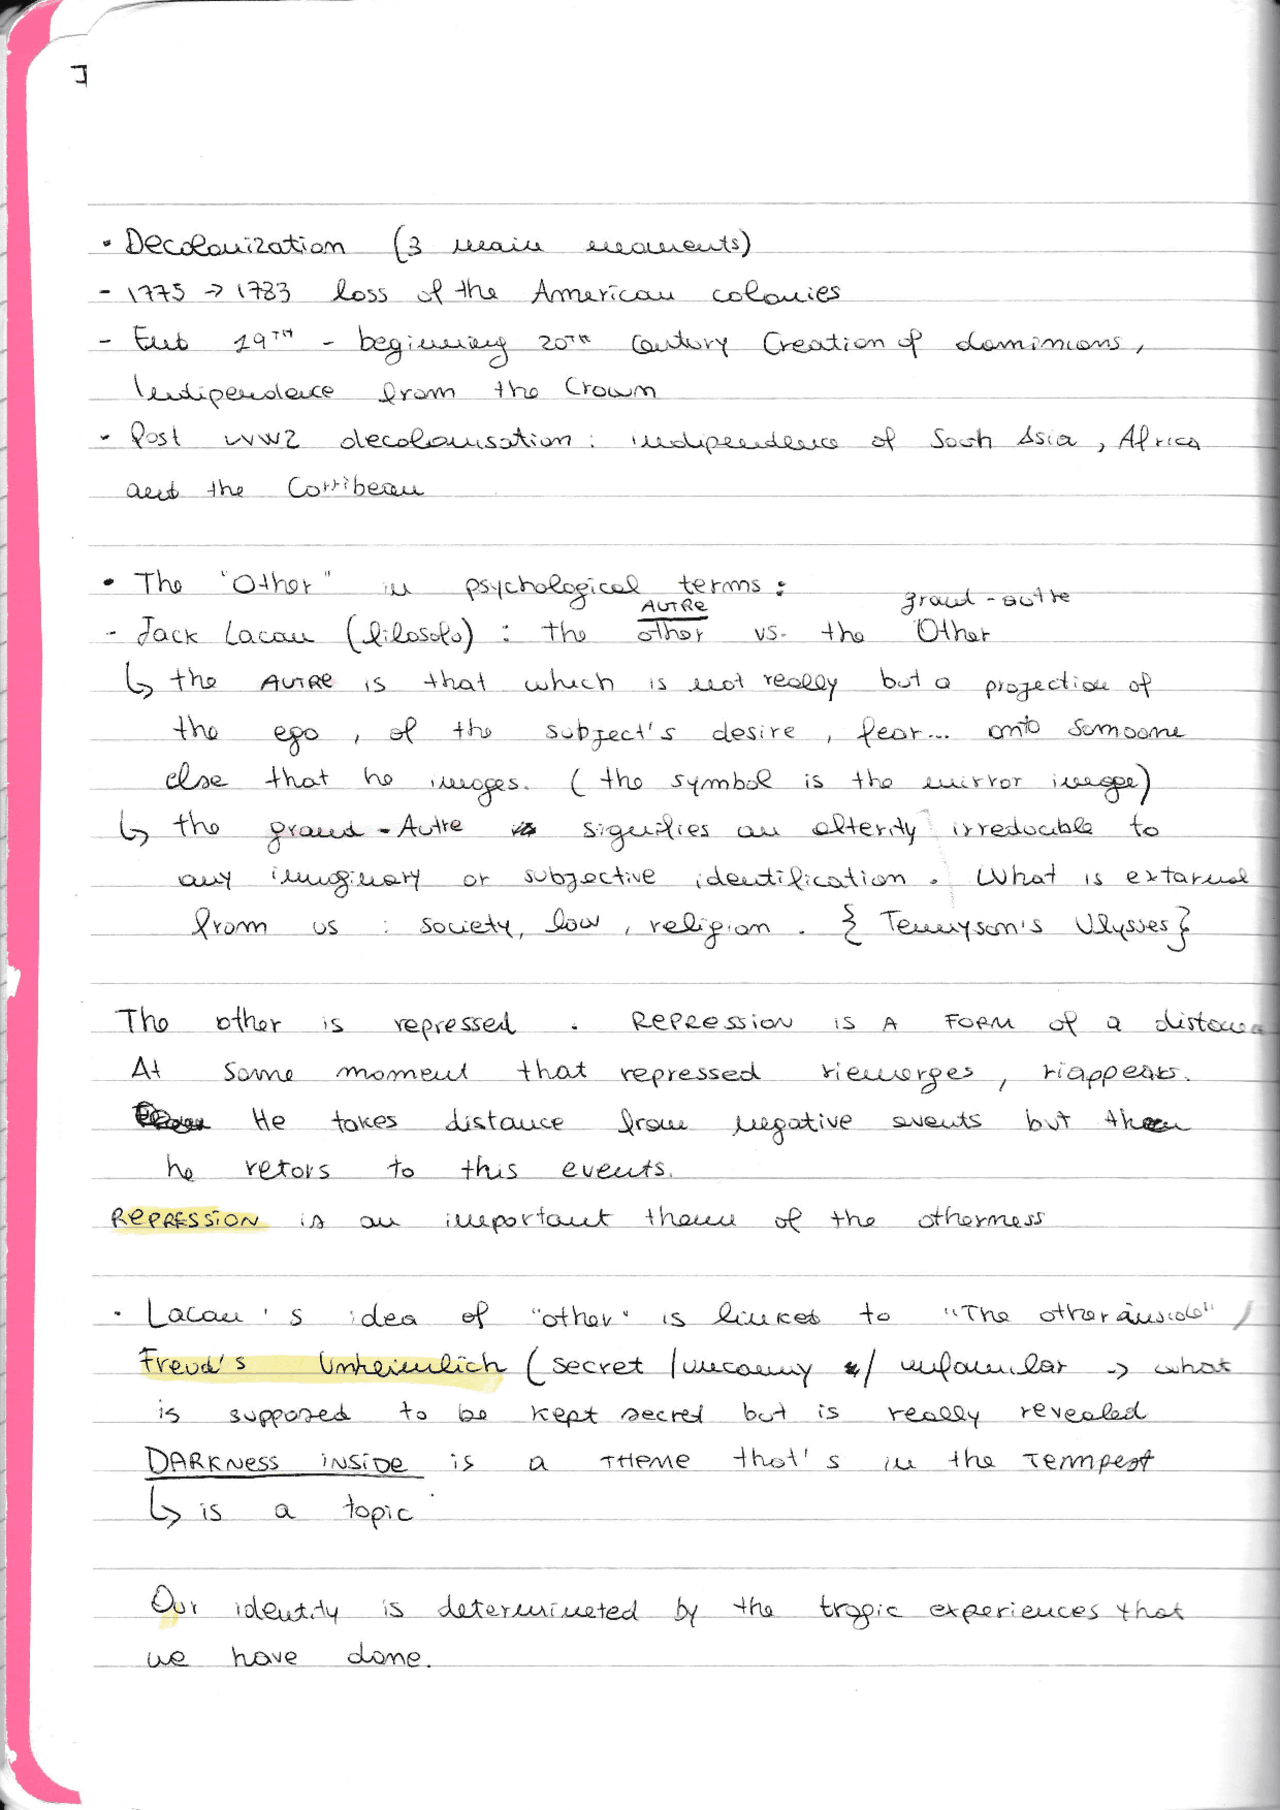 • Decolonization (3 main moments)
- 1775 → 1783 loss of the American colonies
- End 19TH - beginning 20TH century Creation of dominions,
Indipendence from the Crown
- Post WW2 decolonisation: indipendence of South Asia, Africa
and the Carribean
• The "Other" in psychological terms:
AUTRE grand-autre
- Jack Lacan (filosofo) : the other vs. the Other
↳ the AUTRE is that which is not really but a projection of
the ego, of the subject's desire, fear... onto someone
else that he images. (the symbol is the mirror image)
↳ the grand-Autre signifies an alterity irreducible to
any imaginary or subjective identification. What is external
from us : society, law, religion. { Tennyson's Ulysses}
The other is repressed. REPRESSION IS A FORM of a distance
At some moment that repressed riemerges, riappears.
He takes distance from negative events but then
he retors to this events.
REPRESSION is an important theme of the otherness
• Lacan's idea of "other" is linked to "The other inside" /
Freud's Unheimlich (secret /uncanny / unfamiliar → what
is supposed to be kept secret but is really revealed
DARKNESS INSIDE is a THEME that's in the Tempest
↳ is a topic
Our identity is determineted by the tragic experiences that
we have done.